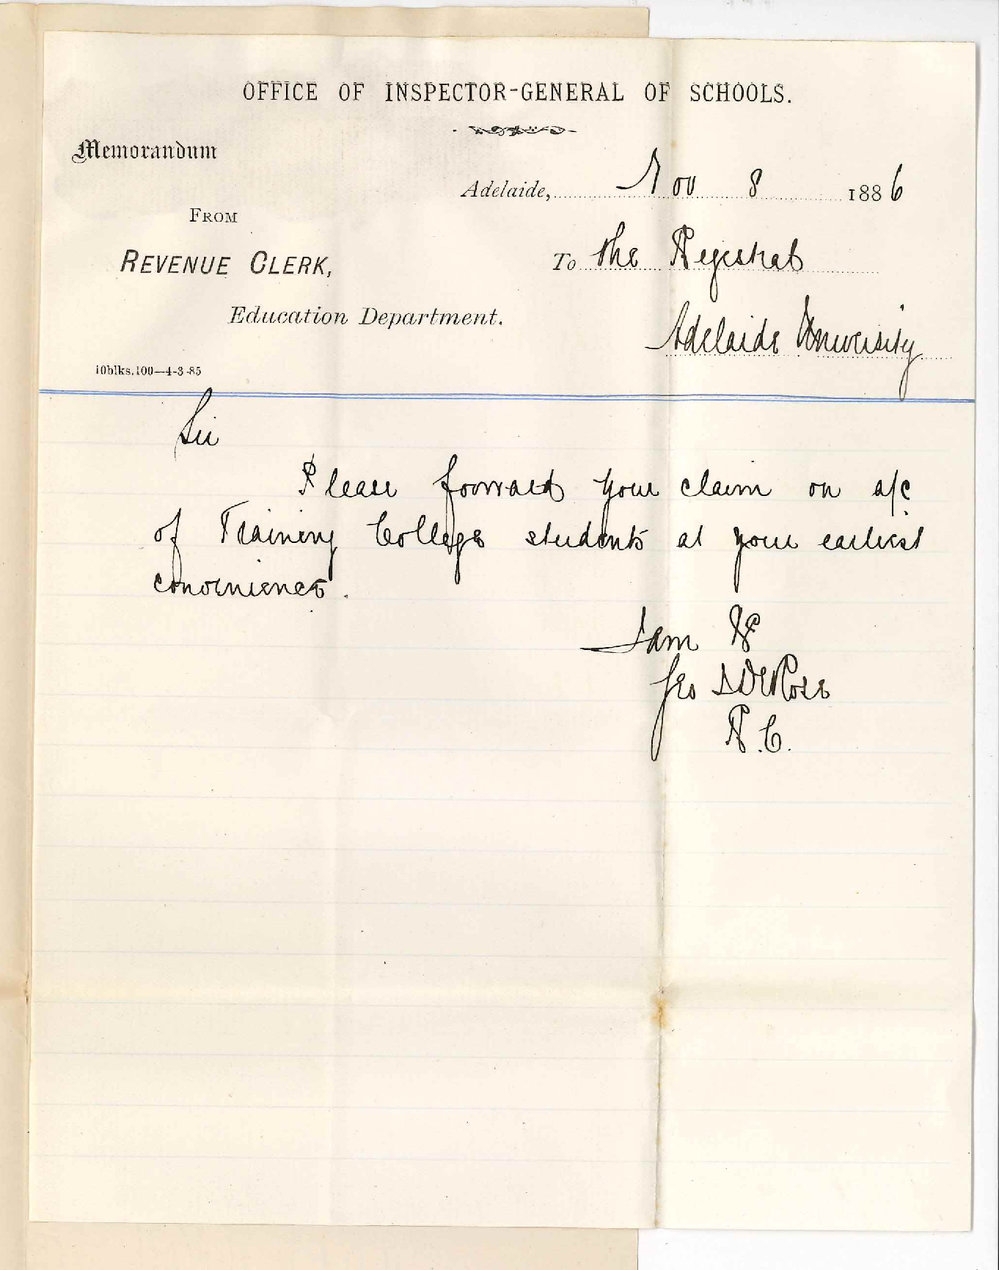 OFFICE OF INSPECTOR-GENERAL OF SCHOOLS.
Memorandum
Adelaide, Nov 8 1886
FROM
REVENUE CLERK,
To the Registrar
Education Department.
Adelaide University
10blks.100—4-3-85
Sir
Please forward your claim on a/c
of Training College students at your earliest
convenience.
I am &c
Geo Ross
R.C.